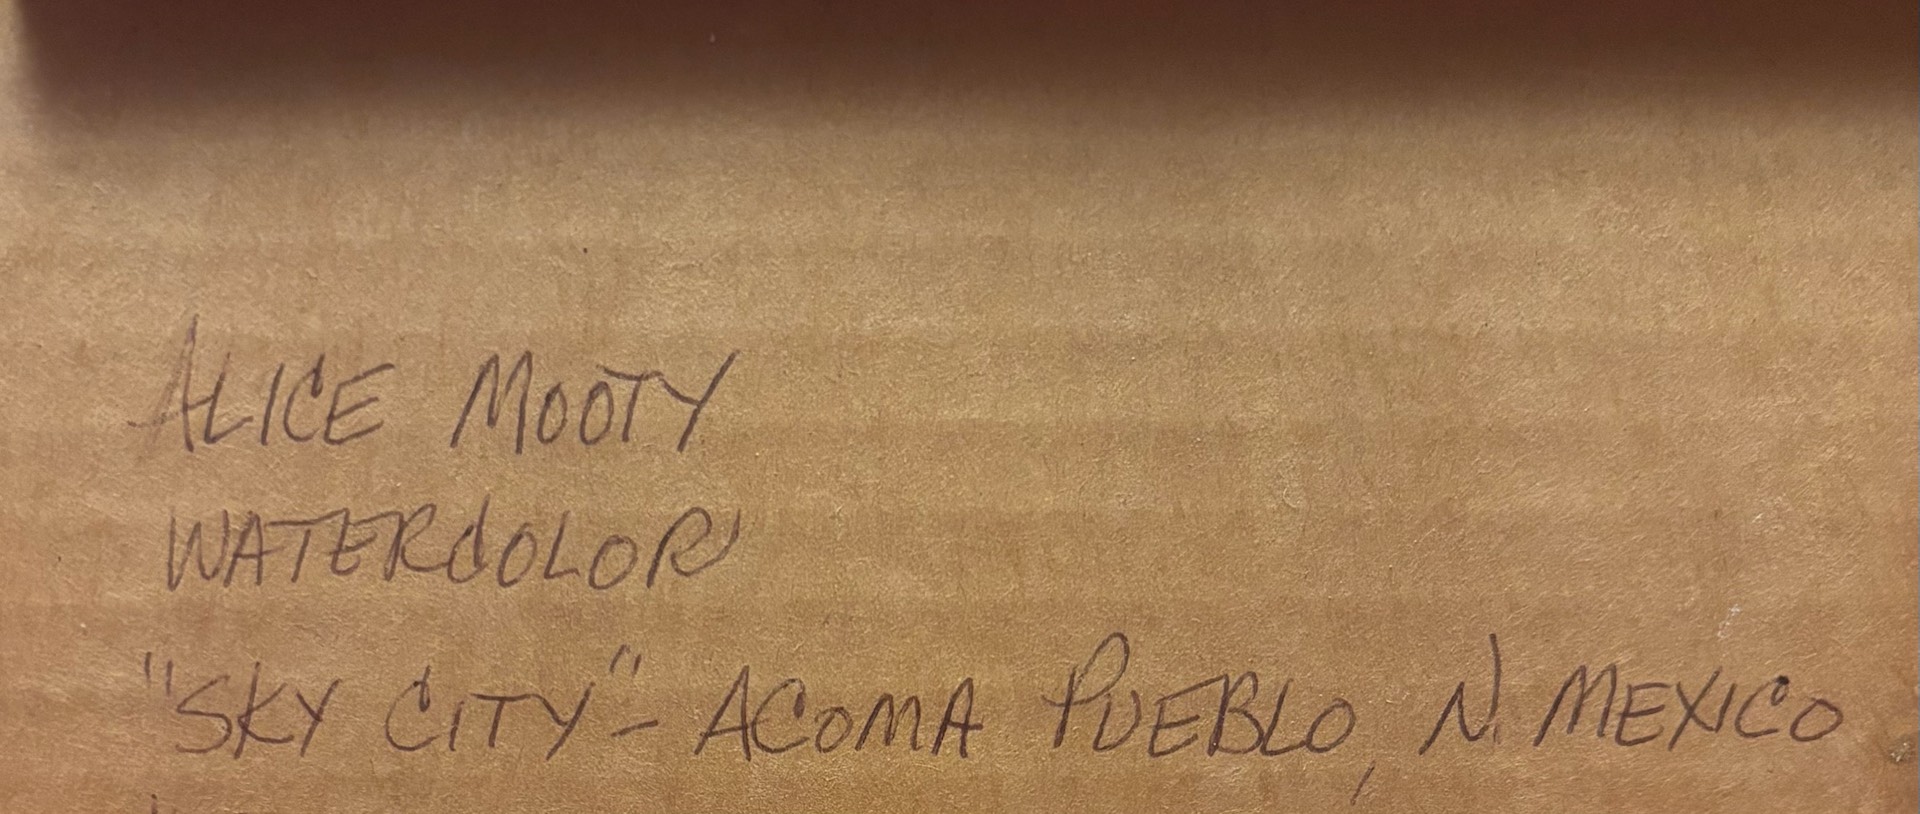 ALICE MOOTY
WATERCOLOR
"SKY CITY" - ACOMA PUEBLO, N. MEXICO